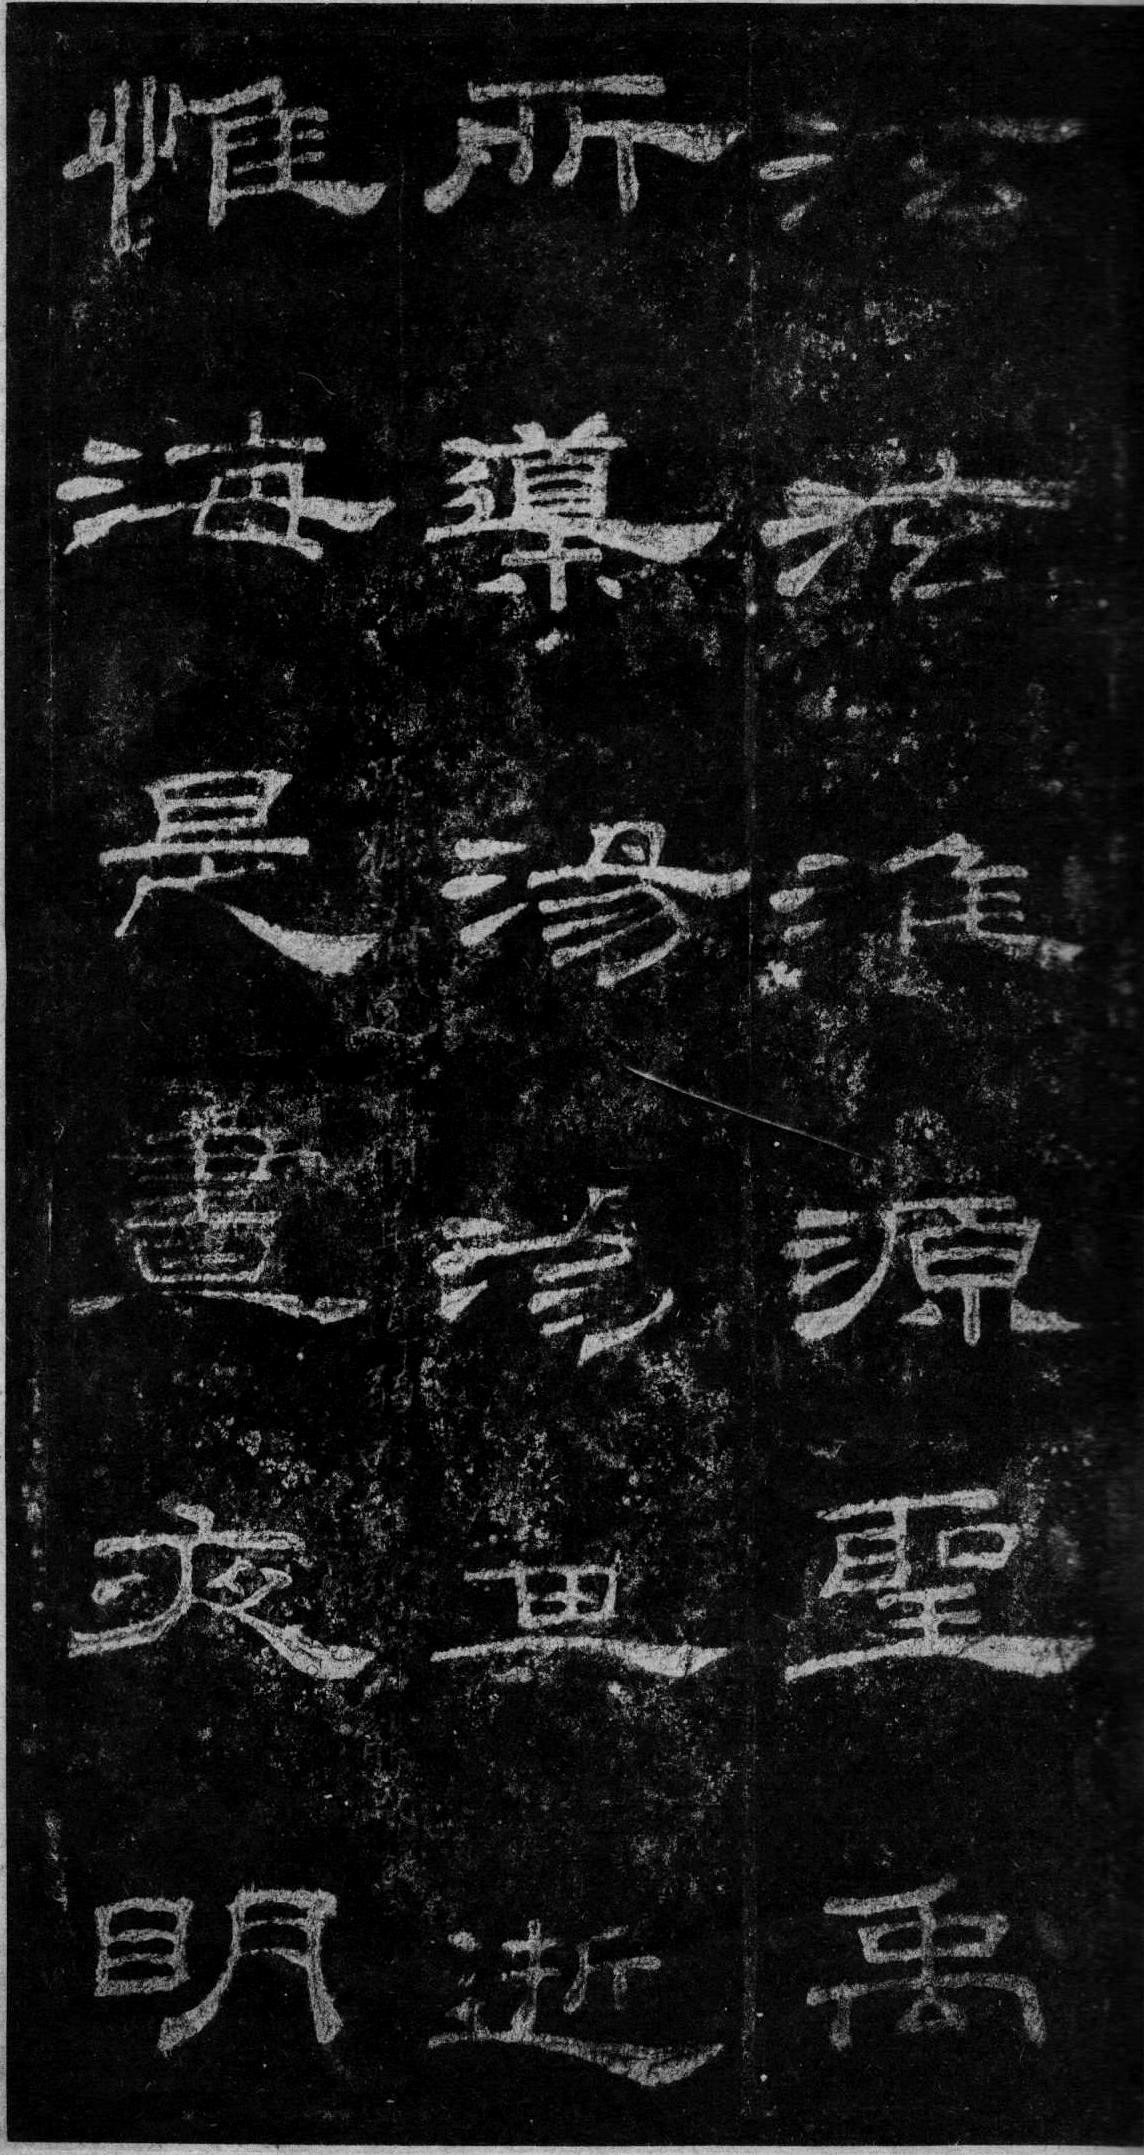 泫泫淮源聖禹
所導湯湯其逝
惟海是晝夜明